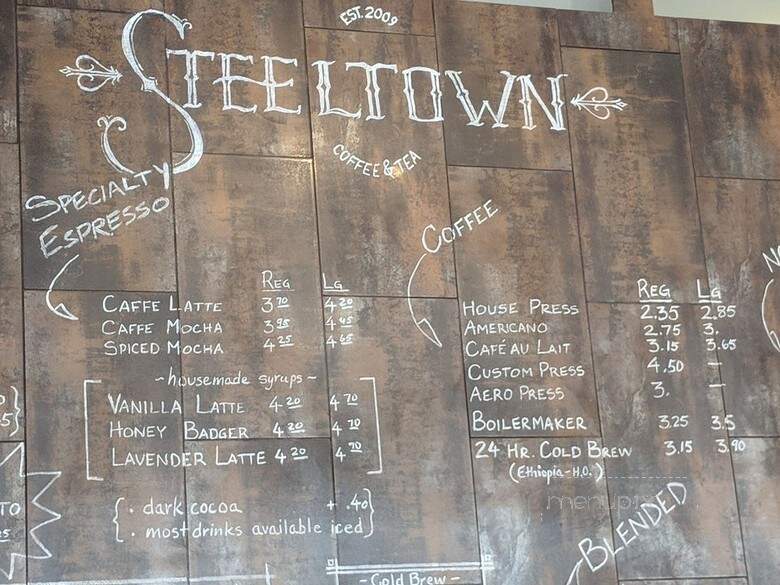 EST. 2009
STEELTOWN
COFFEE & TEA
SPECIALTY
ESPRESSO
REG LG
CAFFE LATTE 3 70 4 20
CAFFE MOCHA 3 95 4 45
SPICED MOCHA 4 25 4 65
~housemade syrups~
VANILLA LATTE 4 20 4 70
HONEY BADGER 4 20 4 70
LAVENDER LATTE 4 20 4 70
{. dark cocoa + .40}
{. most drinks available iced}
- Cold Brew -
COFFEE
REG LG
HOUSE PRESS 2.35 2.85
AMERICANO 2.75 3.
CAFÉ AU LAIT 3.15 3.65
CUSTOM PRESS 4.50 —
AERO PRESS 3. —
BOILERMAKER 3.25 3.5
24 HR. COLD BREW 3.15 3.90
(Ethiopia-H.O.)
BLENDED